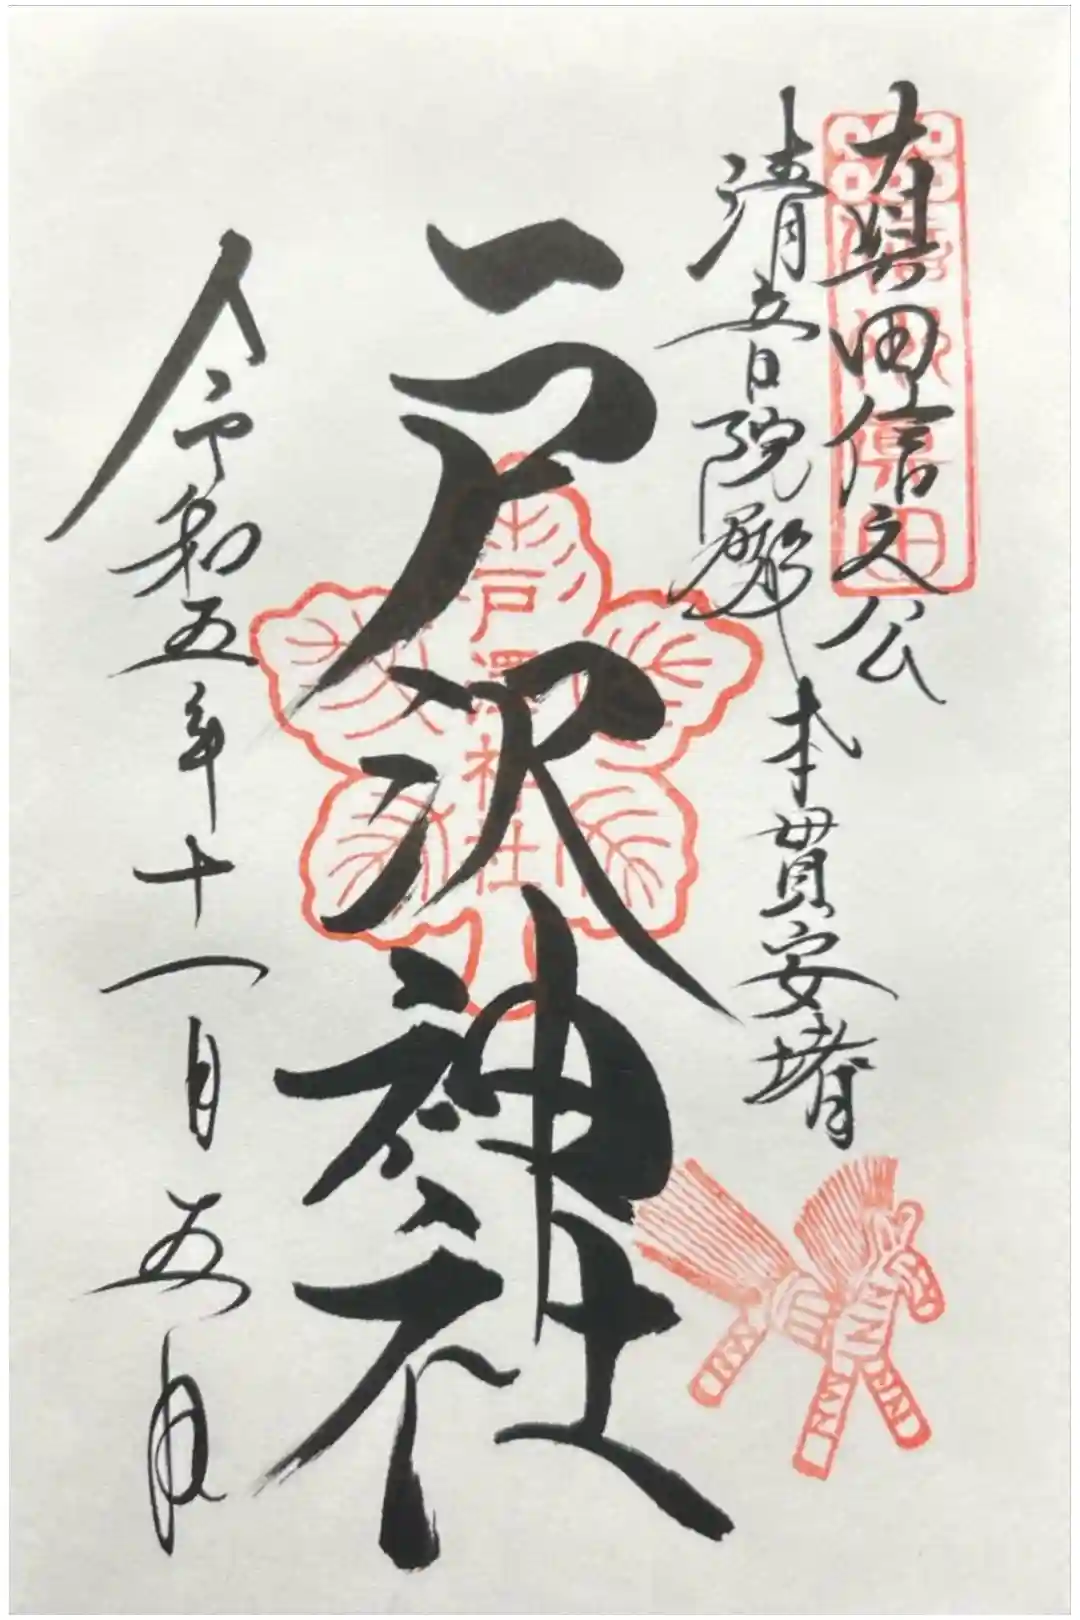 真田信之公
清音院殿 本貫安堵
戸沢神社
戸澤神社
令和五年十一月五日